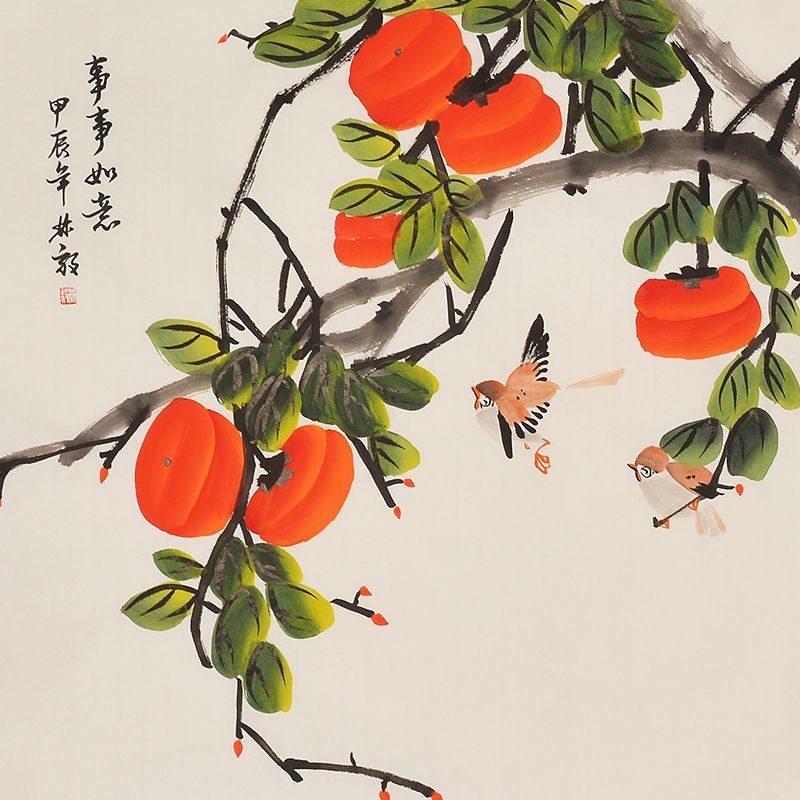 事事如意
甲辰年林毅